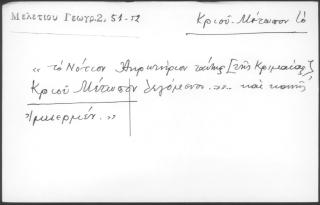 Μελετίου Γεωγρ. 2, 51-52
Κριοῦ-Μέτωπον
"τὸ Νότιον Ἀκρωτήριον ταύτης [τῆς Κριμαίας]
Κριοῦ Μέτωπον λεγόμενον.... καὶ κοινῶς